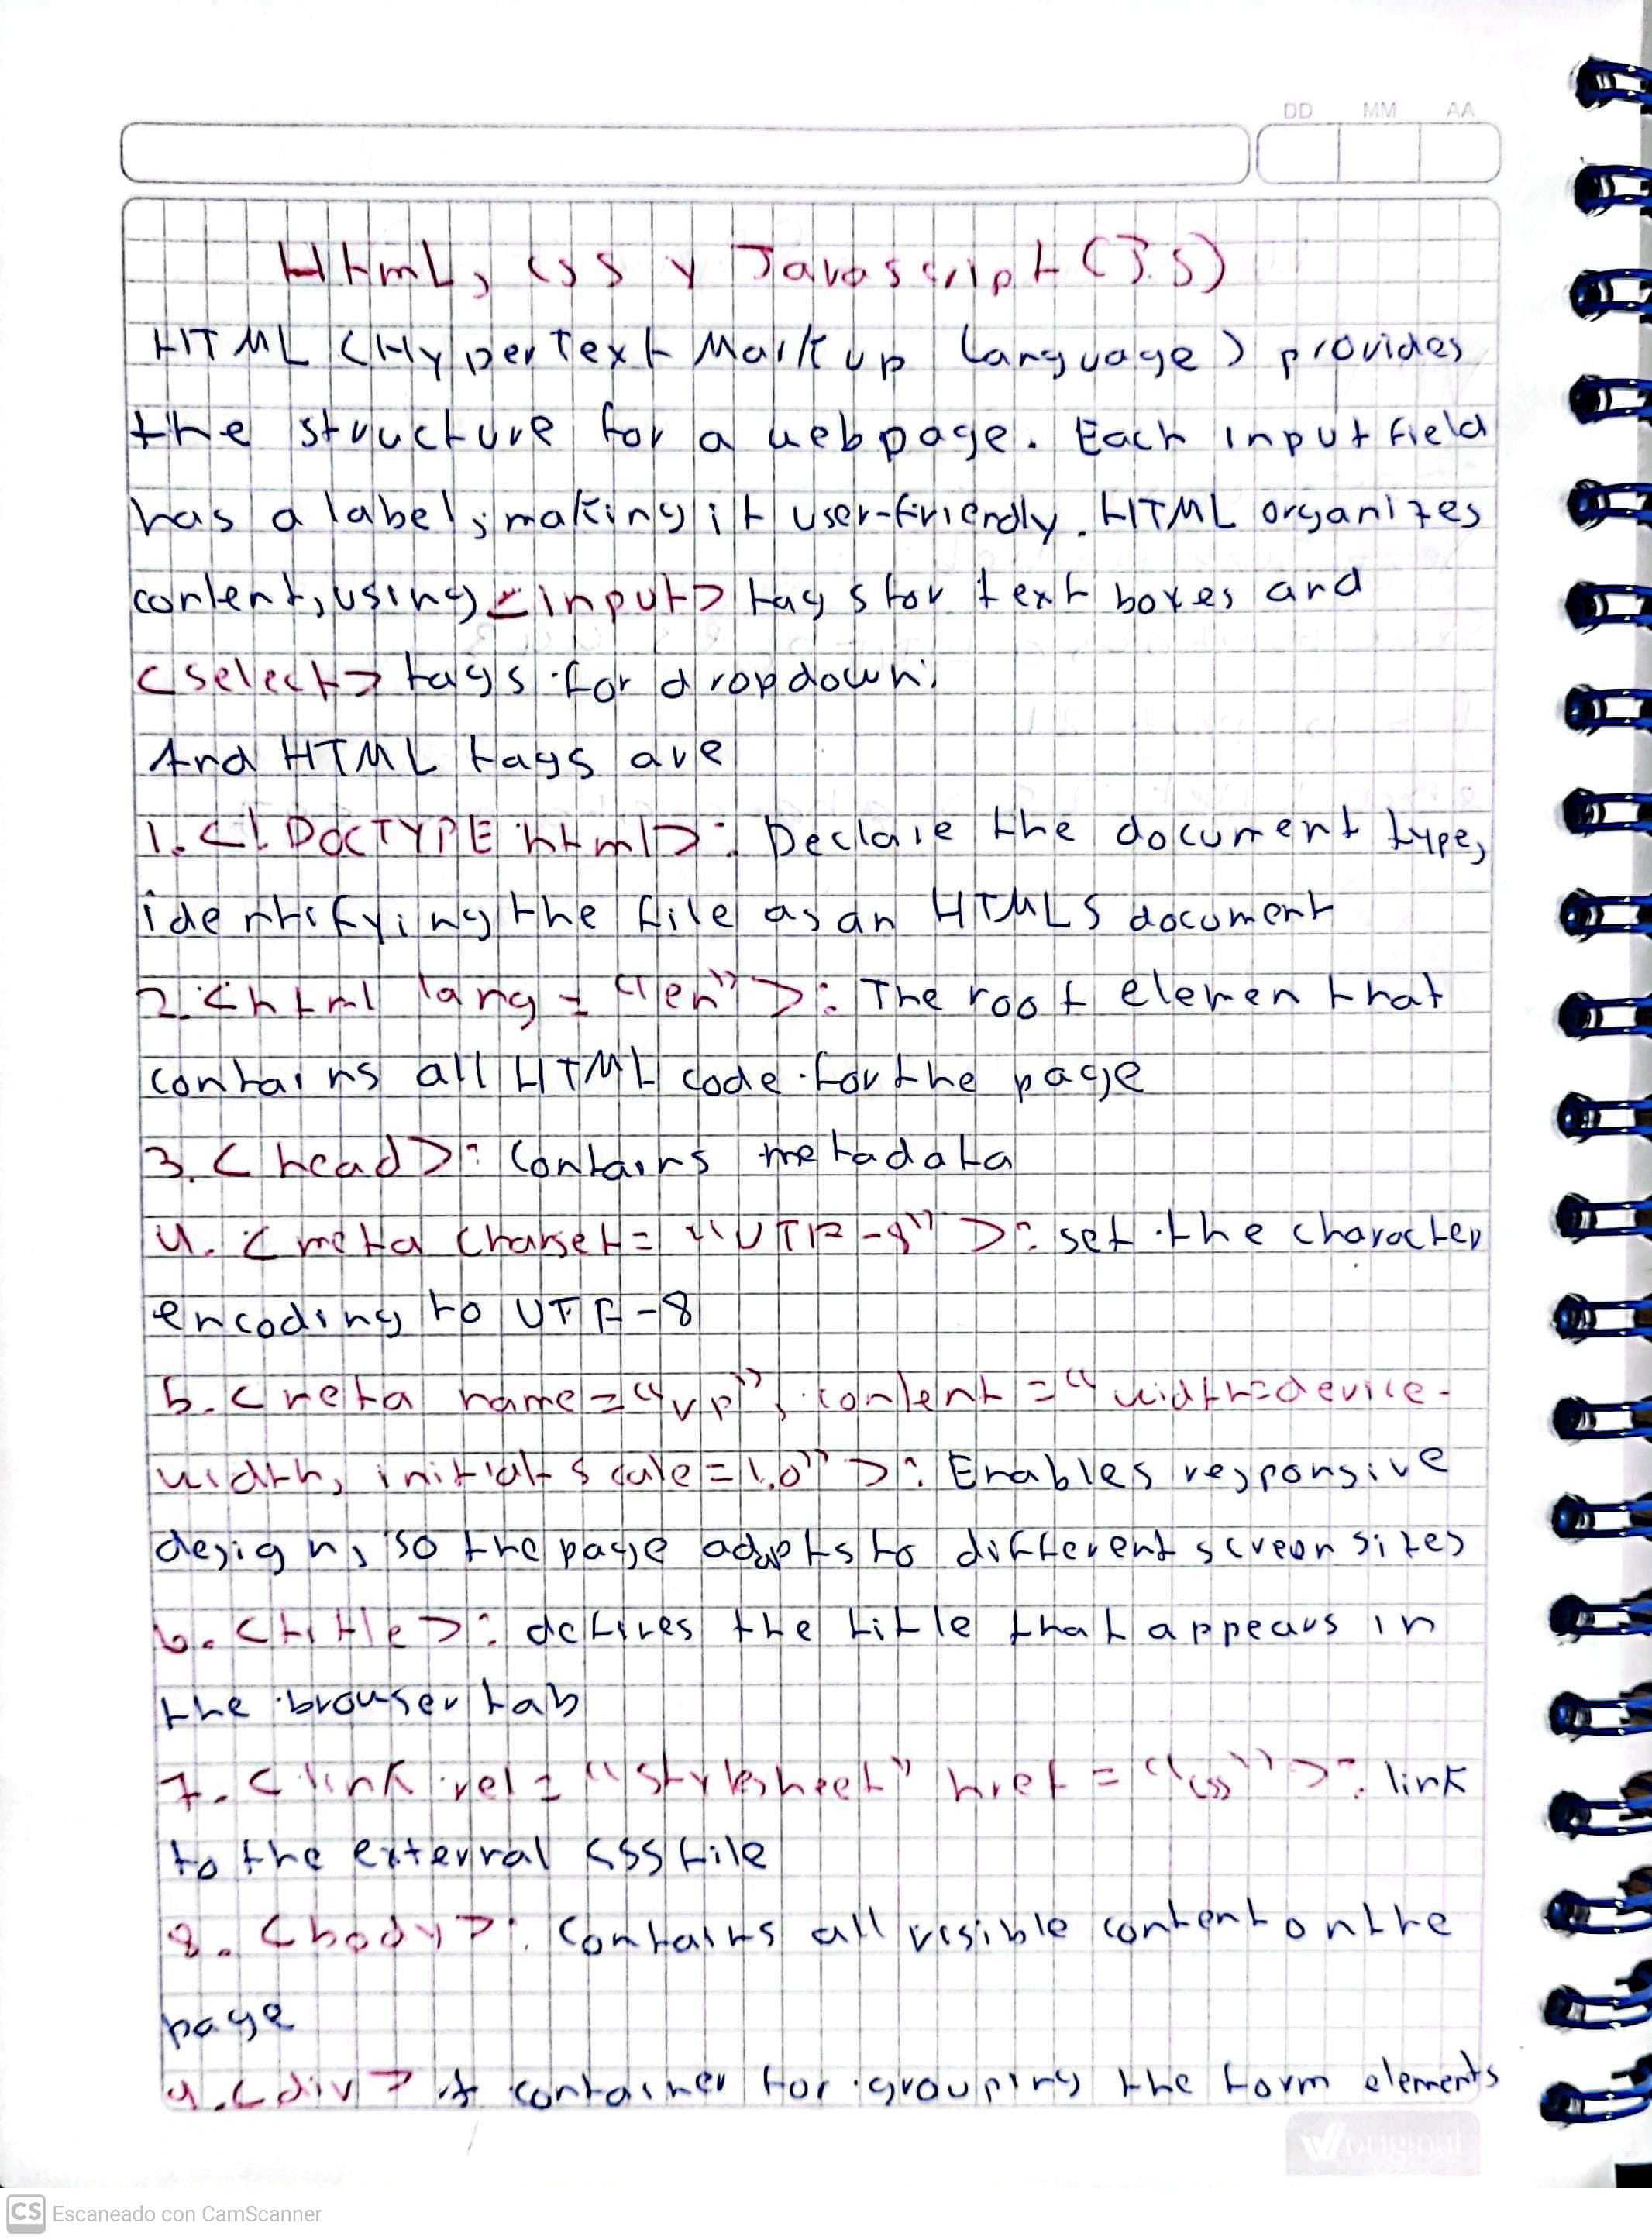 DD MM AA
Html, css y Javascript (J.S)
HTML (HyperText Markup Language) provides
the structure for a webpage. Each input field
has a label, making it user-friendly. HTML organizes
content, using <input> tags for text boxes and
<select> tags for dropdown.
And HTML tags are
1. <!DOCTYPE html>: Declare the document type,
identifying the file as an HTML5 document
2. <html lang = "en">: The root elemen that
contains all HTML code for the page
3. <head>: Contains metadata
4. <meta charset= "UTF-8" >: set the character
encoding to UTF-8
5. <meta name="vp", content = "width=device-
width, initial-scale=1.0">: Enables responsive
design, so the page adapts to different screen sizes
6. <title>: defines the title that appears in
the browser tab
7. <link rel= "stylesheet" href = "css">: link
to the external CSS file
8. <body>: Contains all visible content on the
page
9. <div> A container for grouping the form elements
W original
CS Escaneado con CamScanner